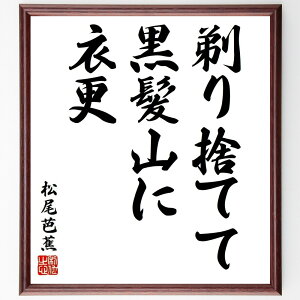 剃り捨てて
黒髪山に
衣更
松尾芭蕉